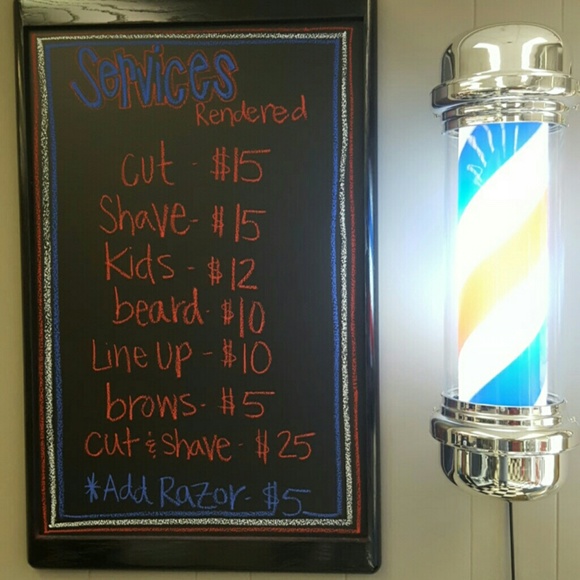 Services
Rendered
cut - $15
Shave- $15
Kids - $12
beard- $10
Line Up - $10
brows- $5
cut & shave- $25
*Add Razor- $5